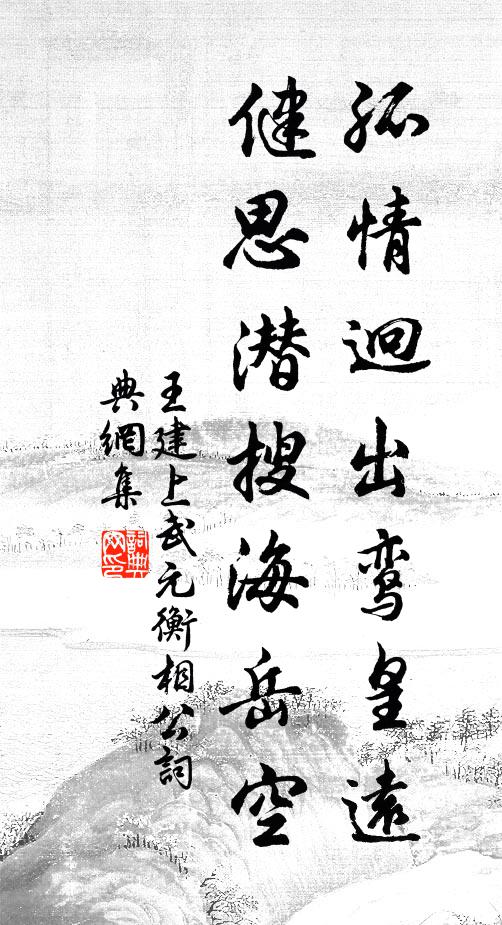 孤情迥出鸾皇遠
健思潜搜海岳空
王建上武元衡相公詞
典網集
詞典网印